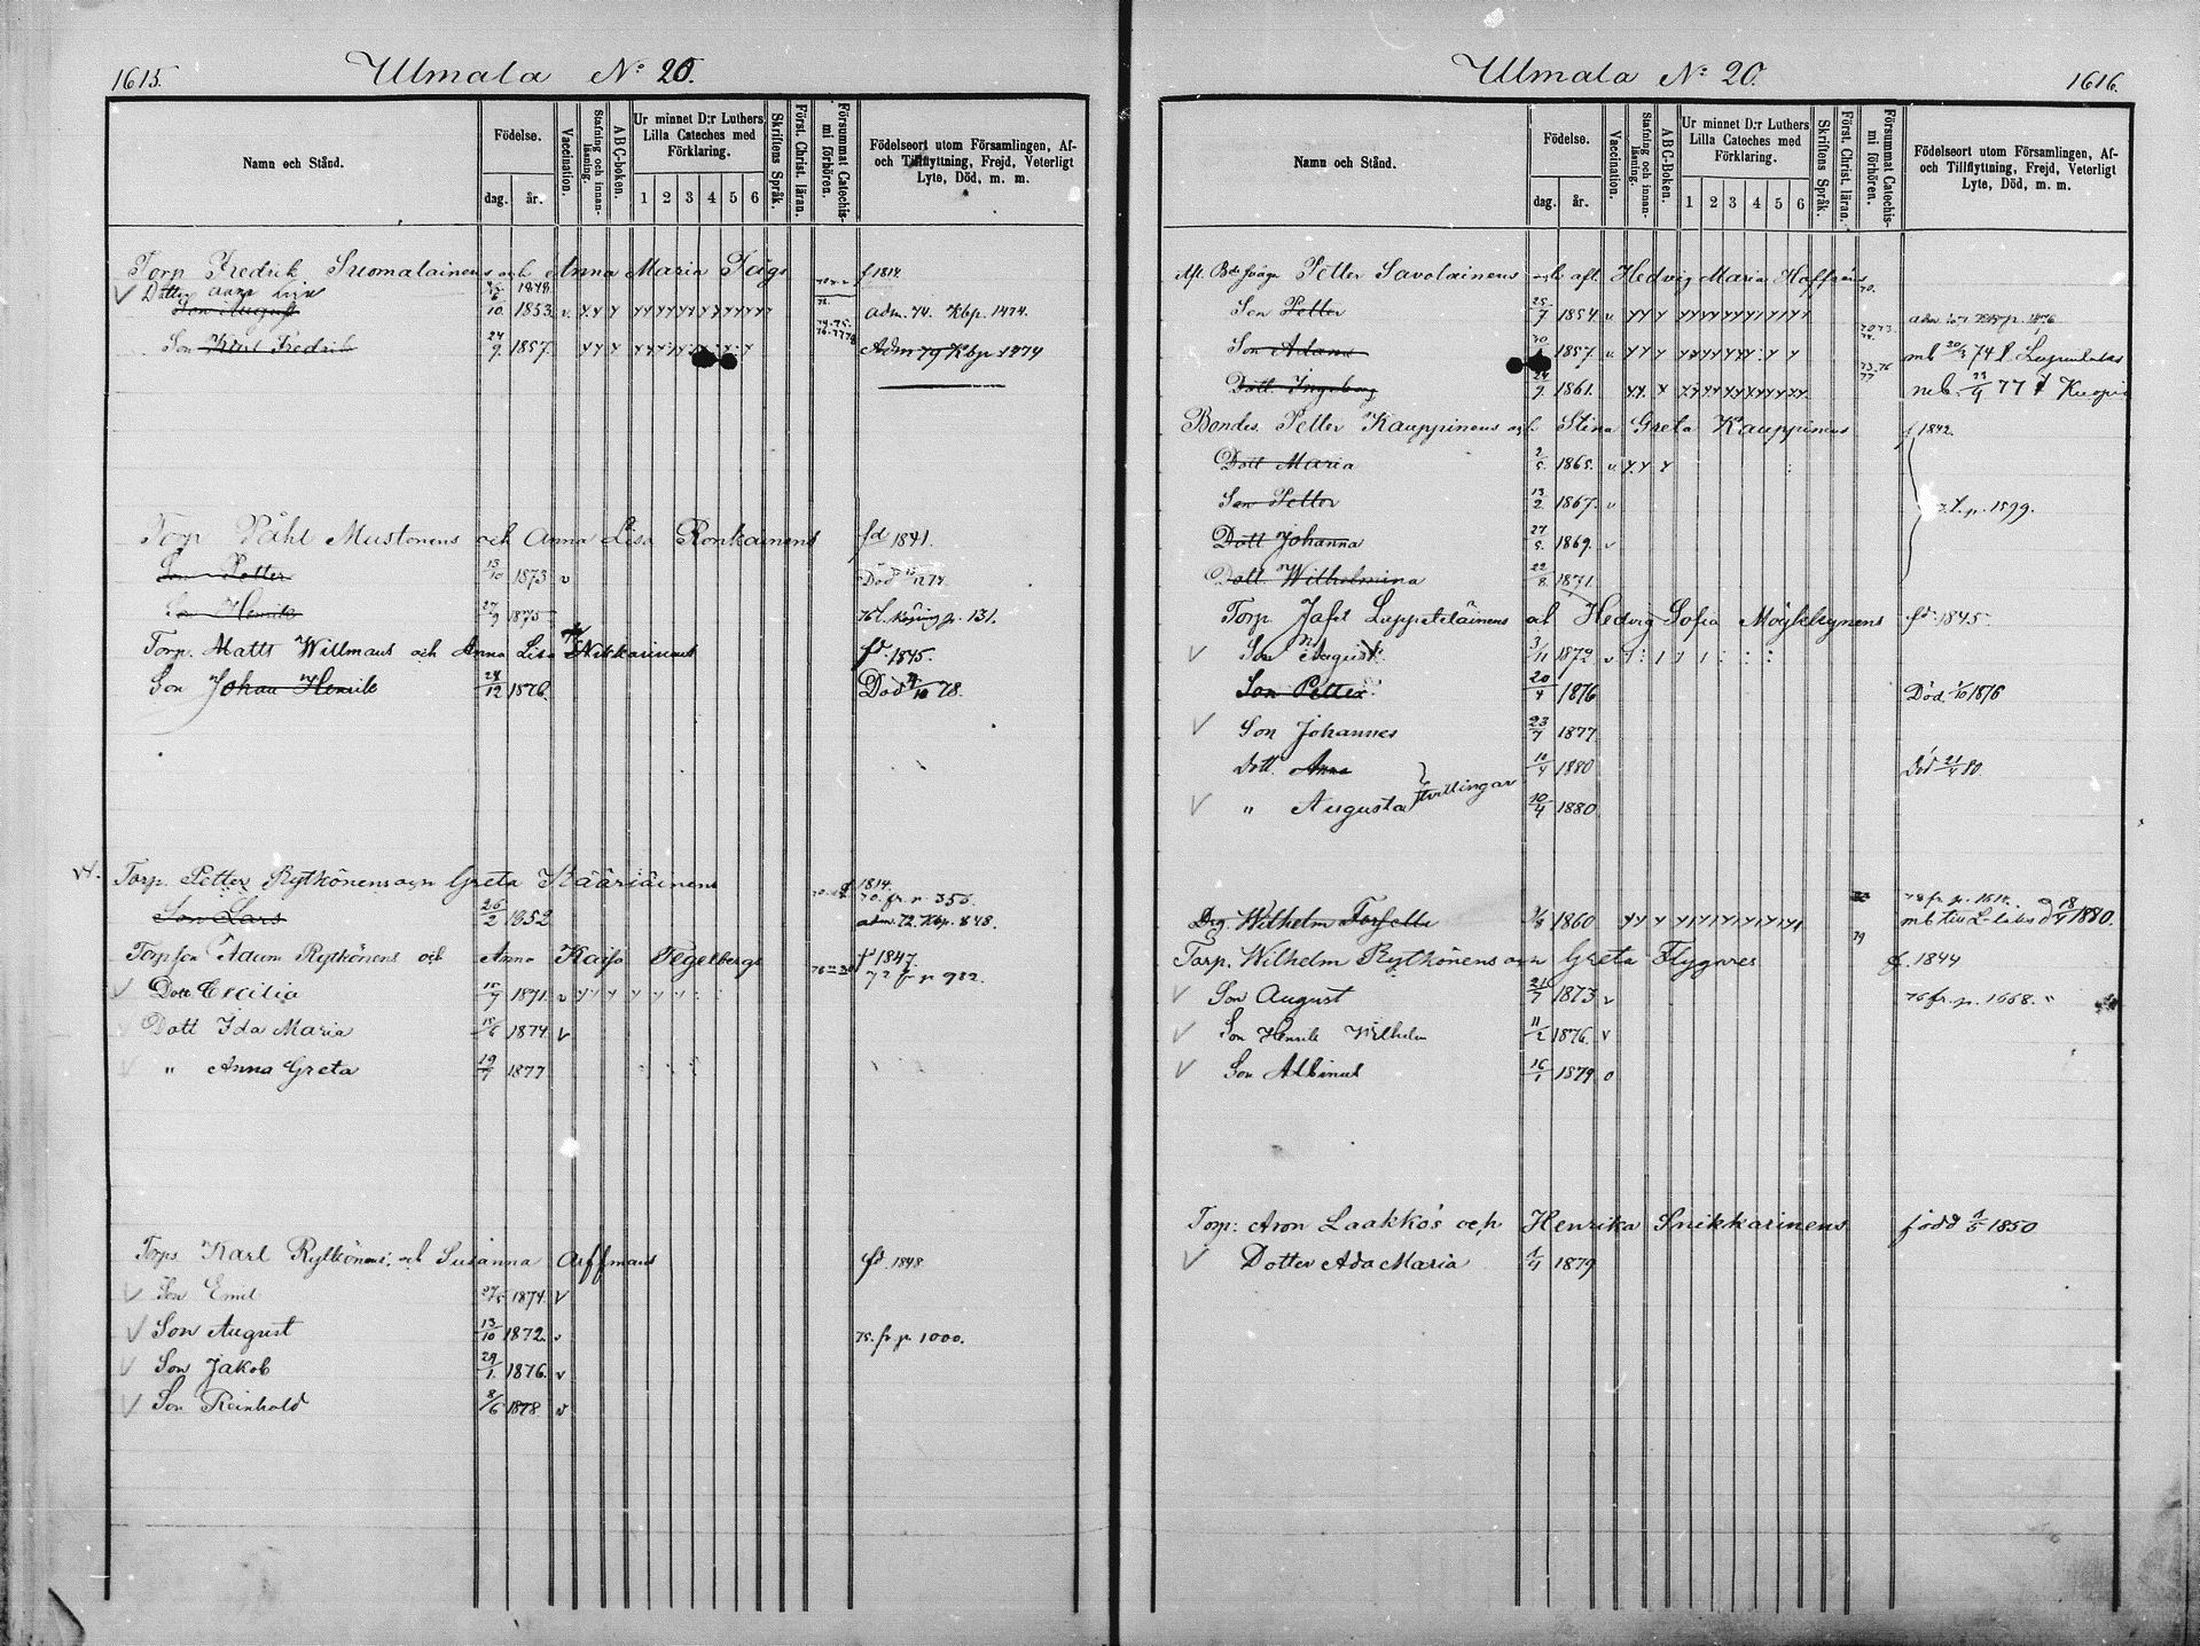 1615. Ulmala No 20.
Namn och Stånd.
Födelse.
dag. år.
Vaccination.
Stafning och innanläsning.
ABC-boken.
Ur minnet D:r Luthers Lilla Cateches med Förklaring.
1 2 3 4 5 6
Skriftens Språk.
Först. Christ. läran.
Försummat Catechismi förhören.
Födelseort utom Församlingen, Af- och Tillflyttning, Frejd, Veterligt Lyte, Död, m. m.
Torp Fredrik Suomalainens och Anna Maria f 1814.
Dotter 1848.
Son August 10 1853 v. adm. 74. Kbp. 1474.
Son Karl Fredrik 24/9 1857. Adm 79 Kbp 1274
Torp Påhl Mustonens och Anna Lisa Ronkainens fd 1841.
Son Petter 13/10 1873 v Död
Son Henrik 27/9 1875 76 p. 131.
Torp. Matts Willmans och Anna Lisa fd. 1845.
Son Johan Henrik 24/12 1876 Död 78.
Torp. Petter Rytkönens och Greta Kääriäinens 1814.
70. fr. p. 356.
Son Lars 26/2 1852 adm. 72. Kbp. 848.
Torpson Adam Rytkönens och Anna Kaisa Tegelbergs f 1847.
72 fr p 982.
Dott Cecilia 15/7 1871. v
Dott Ida Maria 15/6 1874. v
" Anna Greta 19/7 1877
Torps Karl Rytkönens och Susanna Arffmans fd. 1848
Son Emil 1874. v
Son August 13/10 1872. v 75. fr p. 1000.
Son Jakob 29/1. 1876. v
Son Reinhold 8/6 1878 v
Ulmala No 20. 1616.
Namn och Stånd.
Födelse.
dag. år.
Vaccination.
Stafning och innanläsning.
ABC-boken.
Ur minnet D:r Luthers Lilla Cateches med Förklaring.
1 2 3 4 5 6
Skriftens Språk.
Först. Christ. läran.
Försummat Catechismi förhören.
Födelseort utom Församlingen, Af- och Tillflyttning, Frejd, Veterligt Lyte, Död, m. m.
Petter Savolainens och afl. Hedvig Maria Hoffréns 70.
Son Petter 25/7 1854. v
Son Adam 1857. v mb 20/3 74 t.
Dott. Ingeborg 24/9. 1861. 77 Kuopio
Bondes. Petter Kauppinens och Stina Greta Kauppinens f 1842.
Dott Maria 2/5. 1865. v
Son Petter 13/2 1867. v p. 1599.
Dott Johanna 27/5. 1869. v
Dott Wilhelmina 22/8. 1871.
Torp Jafet Lappeteläinens och Hedvig Sofia Möykkynens fd. 1845
Son August 3/11 1872 v
Son Petter 20/4 1876 Död 1876
Son Johannes 23/7 1877
Dott. Anna 10/4 1880 Död 21/4 80
" Augusta tvillingar 10/4 1880
Drg. Wilhelm Forsell 1860 18/4 1880.
Torp. Wilhelm Rytkönens och Greta Flygares f. 1844
Son August 21/7 1873 v 76 fr. p. 1668.
Son Henrik Wilhelm 11/2 1876. v
Son Albinus 16/1 1879 v
Torp: Aron Laakko's och Henrika Snikkarinens född 1850
Dotter Ada Maria 1/4 1879